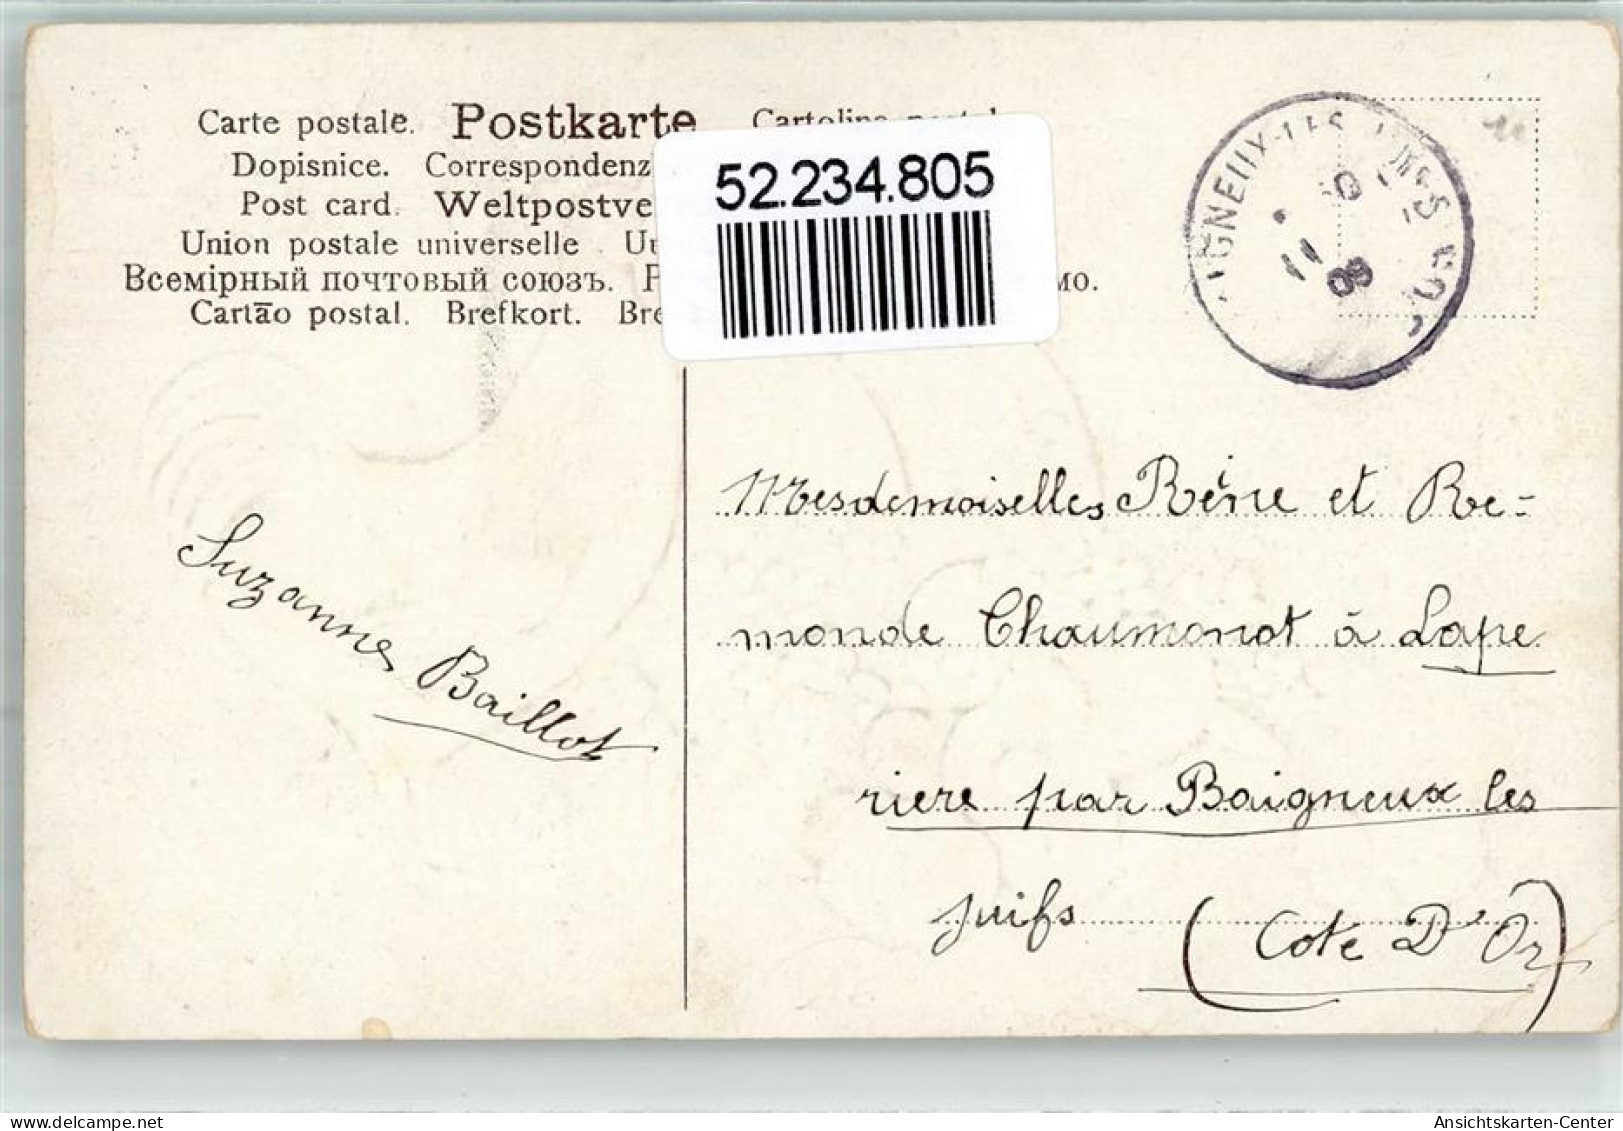 Carte postale. Postkarte
Dopisnice. Correspondenz
Post card. Weltpostve
Union postale universelle.
Всемірный почтовый союзъ.
Cartão postal. Brefkort. Bre
52.234.805
11
09
Mesdemoiselles Réne et Re-
monde Chaumonot à Lape
riere par Baigneux les
juifs (Cote D'Or)
Suzanne Baillot
www.delcampe.net
Ansichtskarten-Center